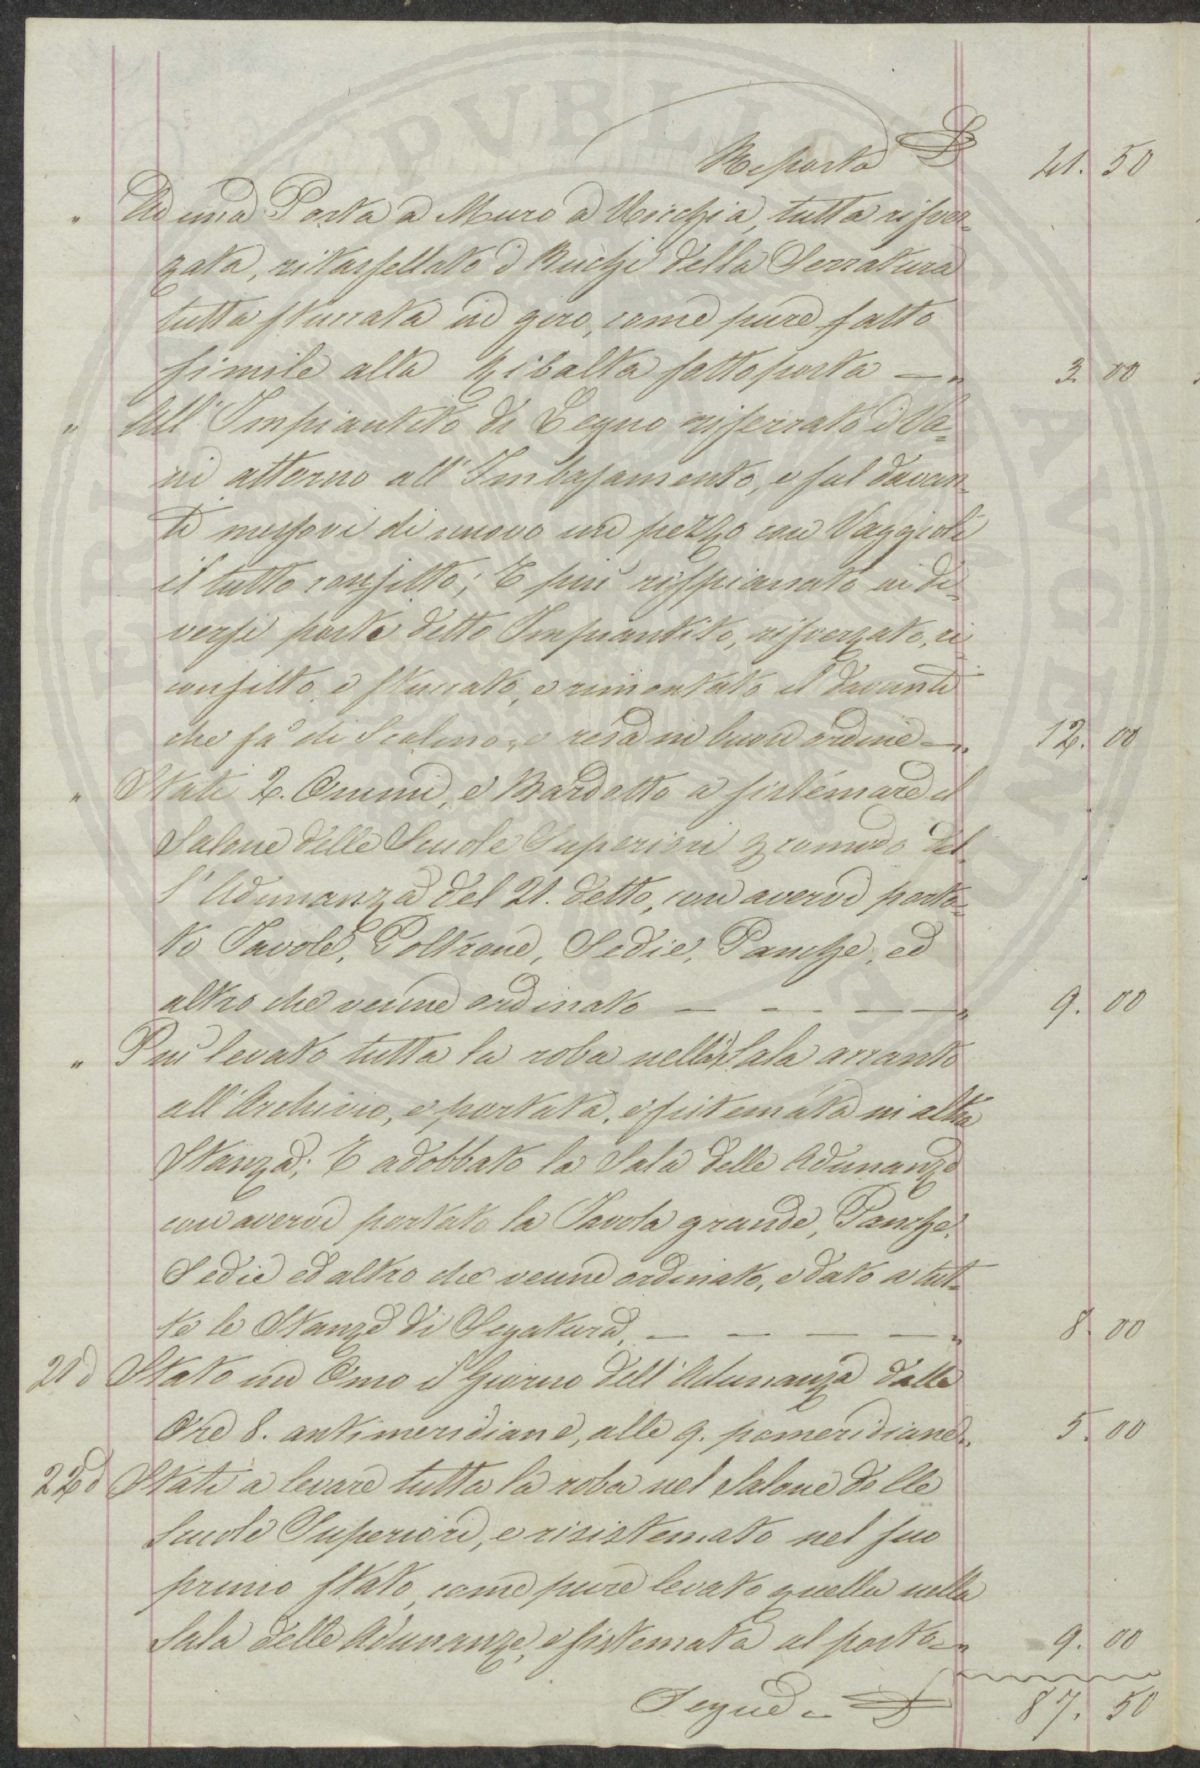 Reporto £ 41. 50
" Ad una Porta a Muro a Nicchia, tutta risver-
zata, ritassellato i Buchi della Serratura
tutta stuccata in giro, come pure fatto
simile alla Ribalta sottoposta — " 3. 00
" All' Impiantito di Legno risferrato i Va-
ni attorno all' Imbasamento, e sul davan-
ti messovi di nuovo un pezzo con Vaggioli
il tutto confitto; E più rispianato in di-
verse parte detto Impiantito, risverzato, ri-
confitto, e stuccato, e rimontato il davanti
che fà di Scalino, e resa in buon ordine — " 12. 00
" Stati 2. Omini, e Bardotto a sistemare il
Salone delle Scuole Superiori comodo del-
l' Adunanza del 21. detto, con avervi porta-
to Tavole, Poltrone, Sedie, Panche, ed
altro che venne ordinato — — — — " 9. 00
" Più levato tutta la roba nella Sala accanto
all' Archivio, e portata, e sistemata in altra
Stanza; E adobbato la Sala delle Adunanze
con avervi portato la Tavola grande, Panche,
Sedie ed altro che venne ordinato, e dato a tut-
te le Stanze di Segatura, — — — — " 8. 00
21 d Stato un Omo il Giorno dell' Adunanza dalle
Ore 8. antimeridiane, alle 9. pomeridiane " 5. 00
22 d Stati a levare tutta la roba nel Salone delle
Scuole Superiori, e risistemato nel suo
primo stato, come pure levato quella nella
Sala delle Adunanze, e sistemata al posto — " 9. 00
Segue £ 87. 50